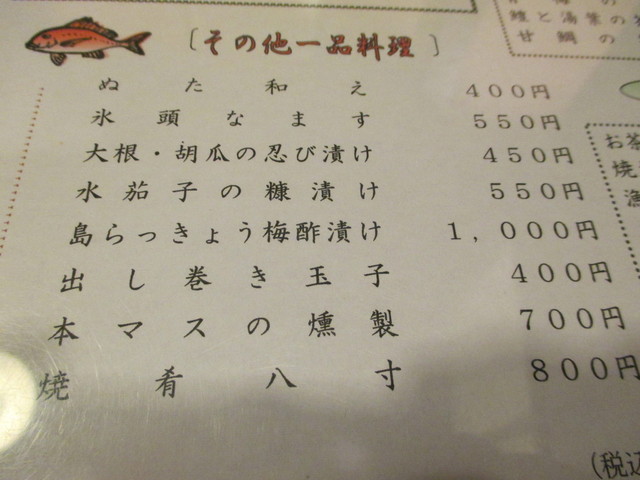 〔その他一品料理〕
ぬた和え 400円
氷頭なます 550円
大根・胡瓜の忍び漬け 450円
水茄子の糠漬け 550円
島らっきょう梅酢漬け 1,000円
出し巻き玉子 400円
本マスの燻製 700円
焼肴八寸 800円
(税込
鱧と湯葉の
甘鯛の
お茶
焼
漁